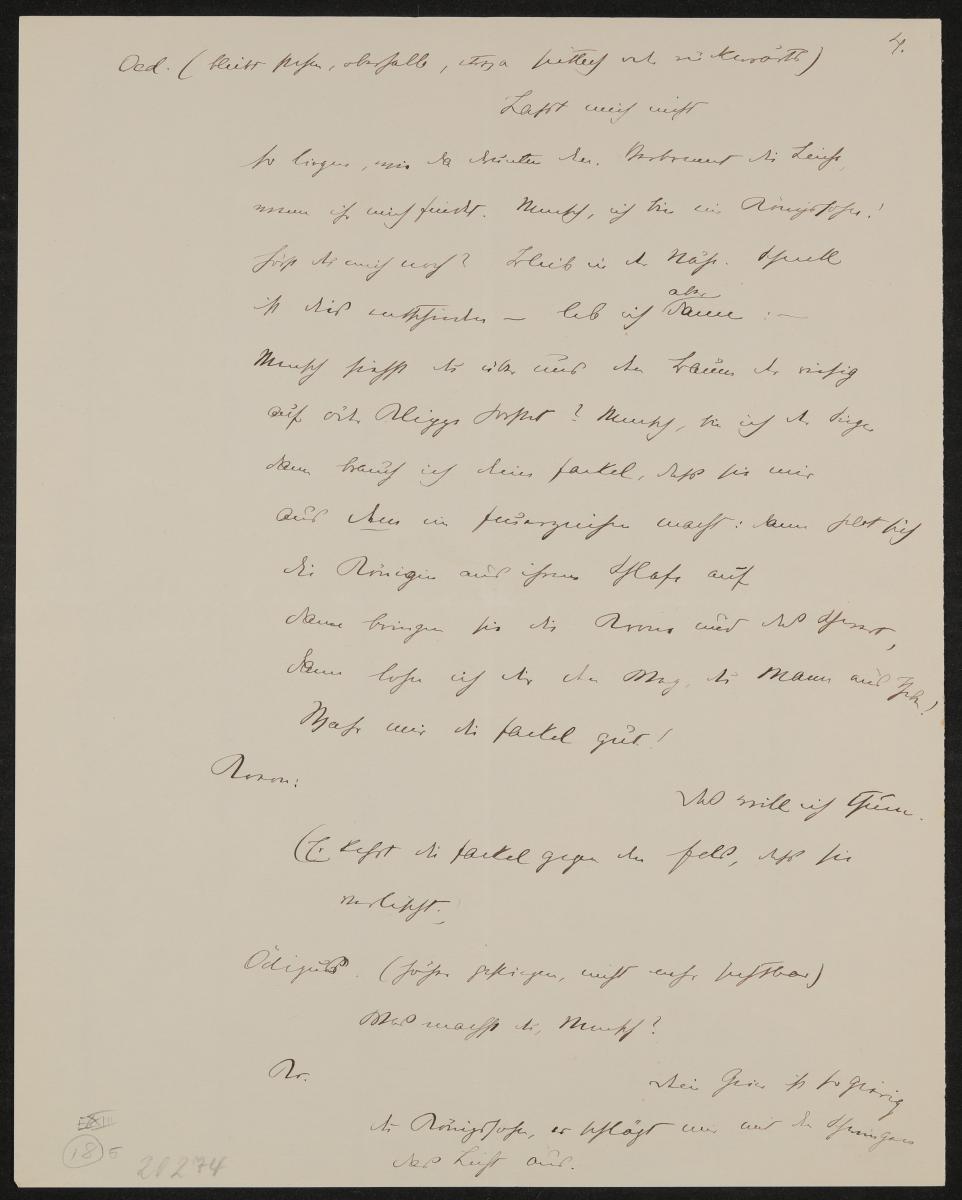 4.
Oed. (bleibt stehen, oberhalb, etwa seitlich rückwärts)
Lasst mich nicht
so liegen, wie da drunten den. Verbrennt die Leiche,
wenn ihr mich findet. Mensch, ich bin ein Königssohn!
hörst du mich noch? Bleib in der Nähe. Schnell
ist dies entschieden — leb ich aber dann :—
Mensch siehst du über uns den Baum der riesig
auf öder Klippe dorrt? Mensch, bin ich der Sieger
dann brauch ich deine Fackel, dass sie mir
aus dem ein Feuerzeichen macht: dann hebt sich
die Königin aus ihrem Schlafe auf
dann bringen sie die Krone und das Schwert,
dann lohn ich dir den Weg, du Mann aus
Wahr mir die Fackel gut!
Kreon:
Das will ich thun.
(Er kehrt die Fackel gegen den Fels, dass sie
verlischt.
Ödipus. (höher gestiegen, nicht mehr sichtbar)
Was machst du, Mensch?
Kr.
Dein Geier ist so gierig
du Königssohn, er schlägt mir mit den Schwingen
das Licht aus.
18
20274